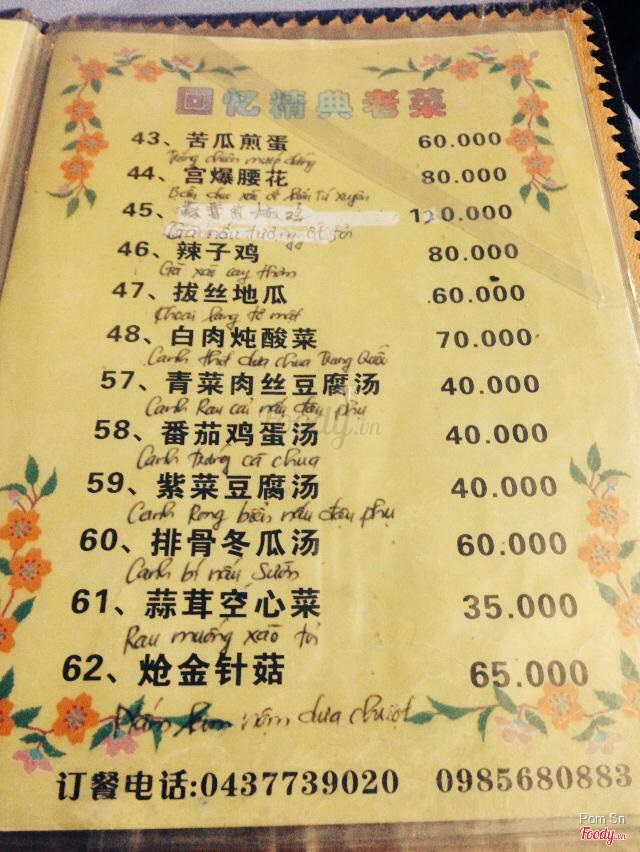 回忆精典老菜
43、苦瓜煎蛋 60.000
Trứng chiên mướp đắng
44、宫爆腰花 80.000
Bầu dục xào ớt kiểu Tứ Xuyên
45、 120.000
Gà nấu tương ớt tỏi
46、辣子鸡 80.000
Gà xào cay thơm
47、拔丝地瓜 60.000
Khoai lang tơ mật
48、白肉炖酸菜 70.000
Canh thịt dưa chua Trung Quốc
57、青菜肉丝豆腐汤 40.000
Canh Rau cải nấu đậu phụ
58、番茄鸡蛋汤 40.000
Canh trứng cà chua
59、紫菜豆腐汤 40.000
Canh Rong biển nấu đậu phụ
60、排骨冬瓜汤 60.000
Canh bí nấu sườn
61、蒜茸空心菜 35.000
Rau muống xào tỏi
62、炝金针菇 65.000
Nấm kim nộm dưa chuột
订餐电话:0437739020 0985680883
Foody.vn
Pom Sn
Foody.vn